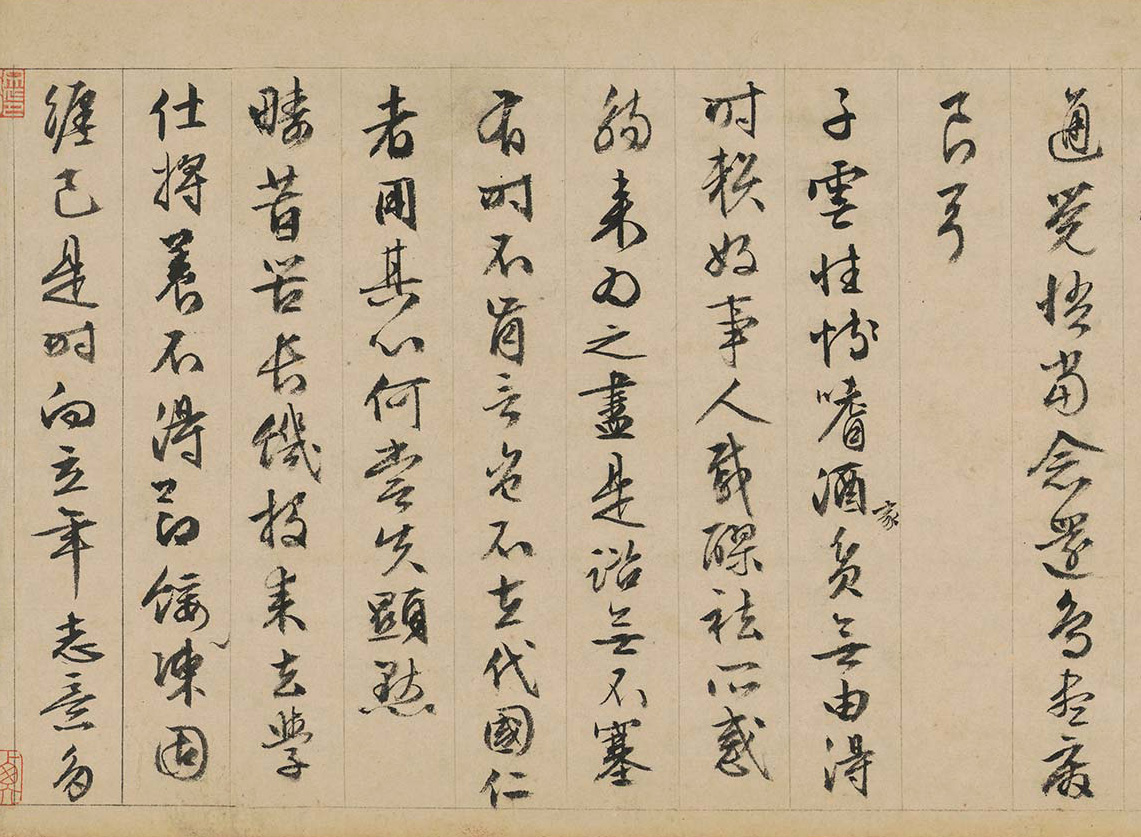 通覺悟當念還鳥盡廢
良弓
子雲性嗜酒家貧無由得
時賴好事人載醪祛所惑
觴来為之盡是諮無不塞
有時不肯言豈不在伐國仁
者用其心何嘗失顯默
疇昔苦長飢投耒去學
仕將養不得節餒凍固
纏己是時向立年志意多